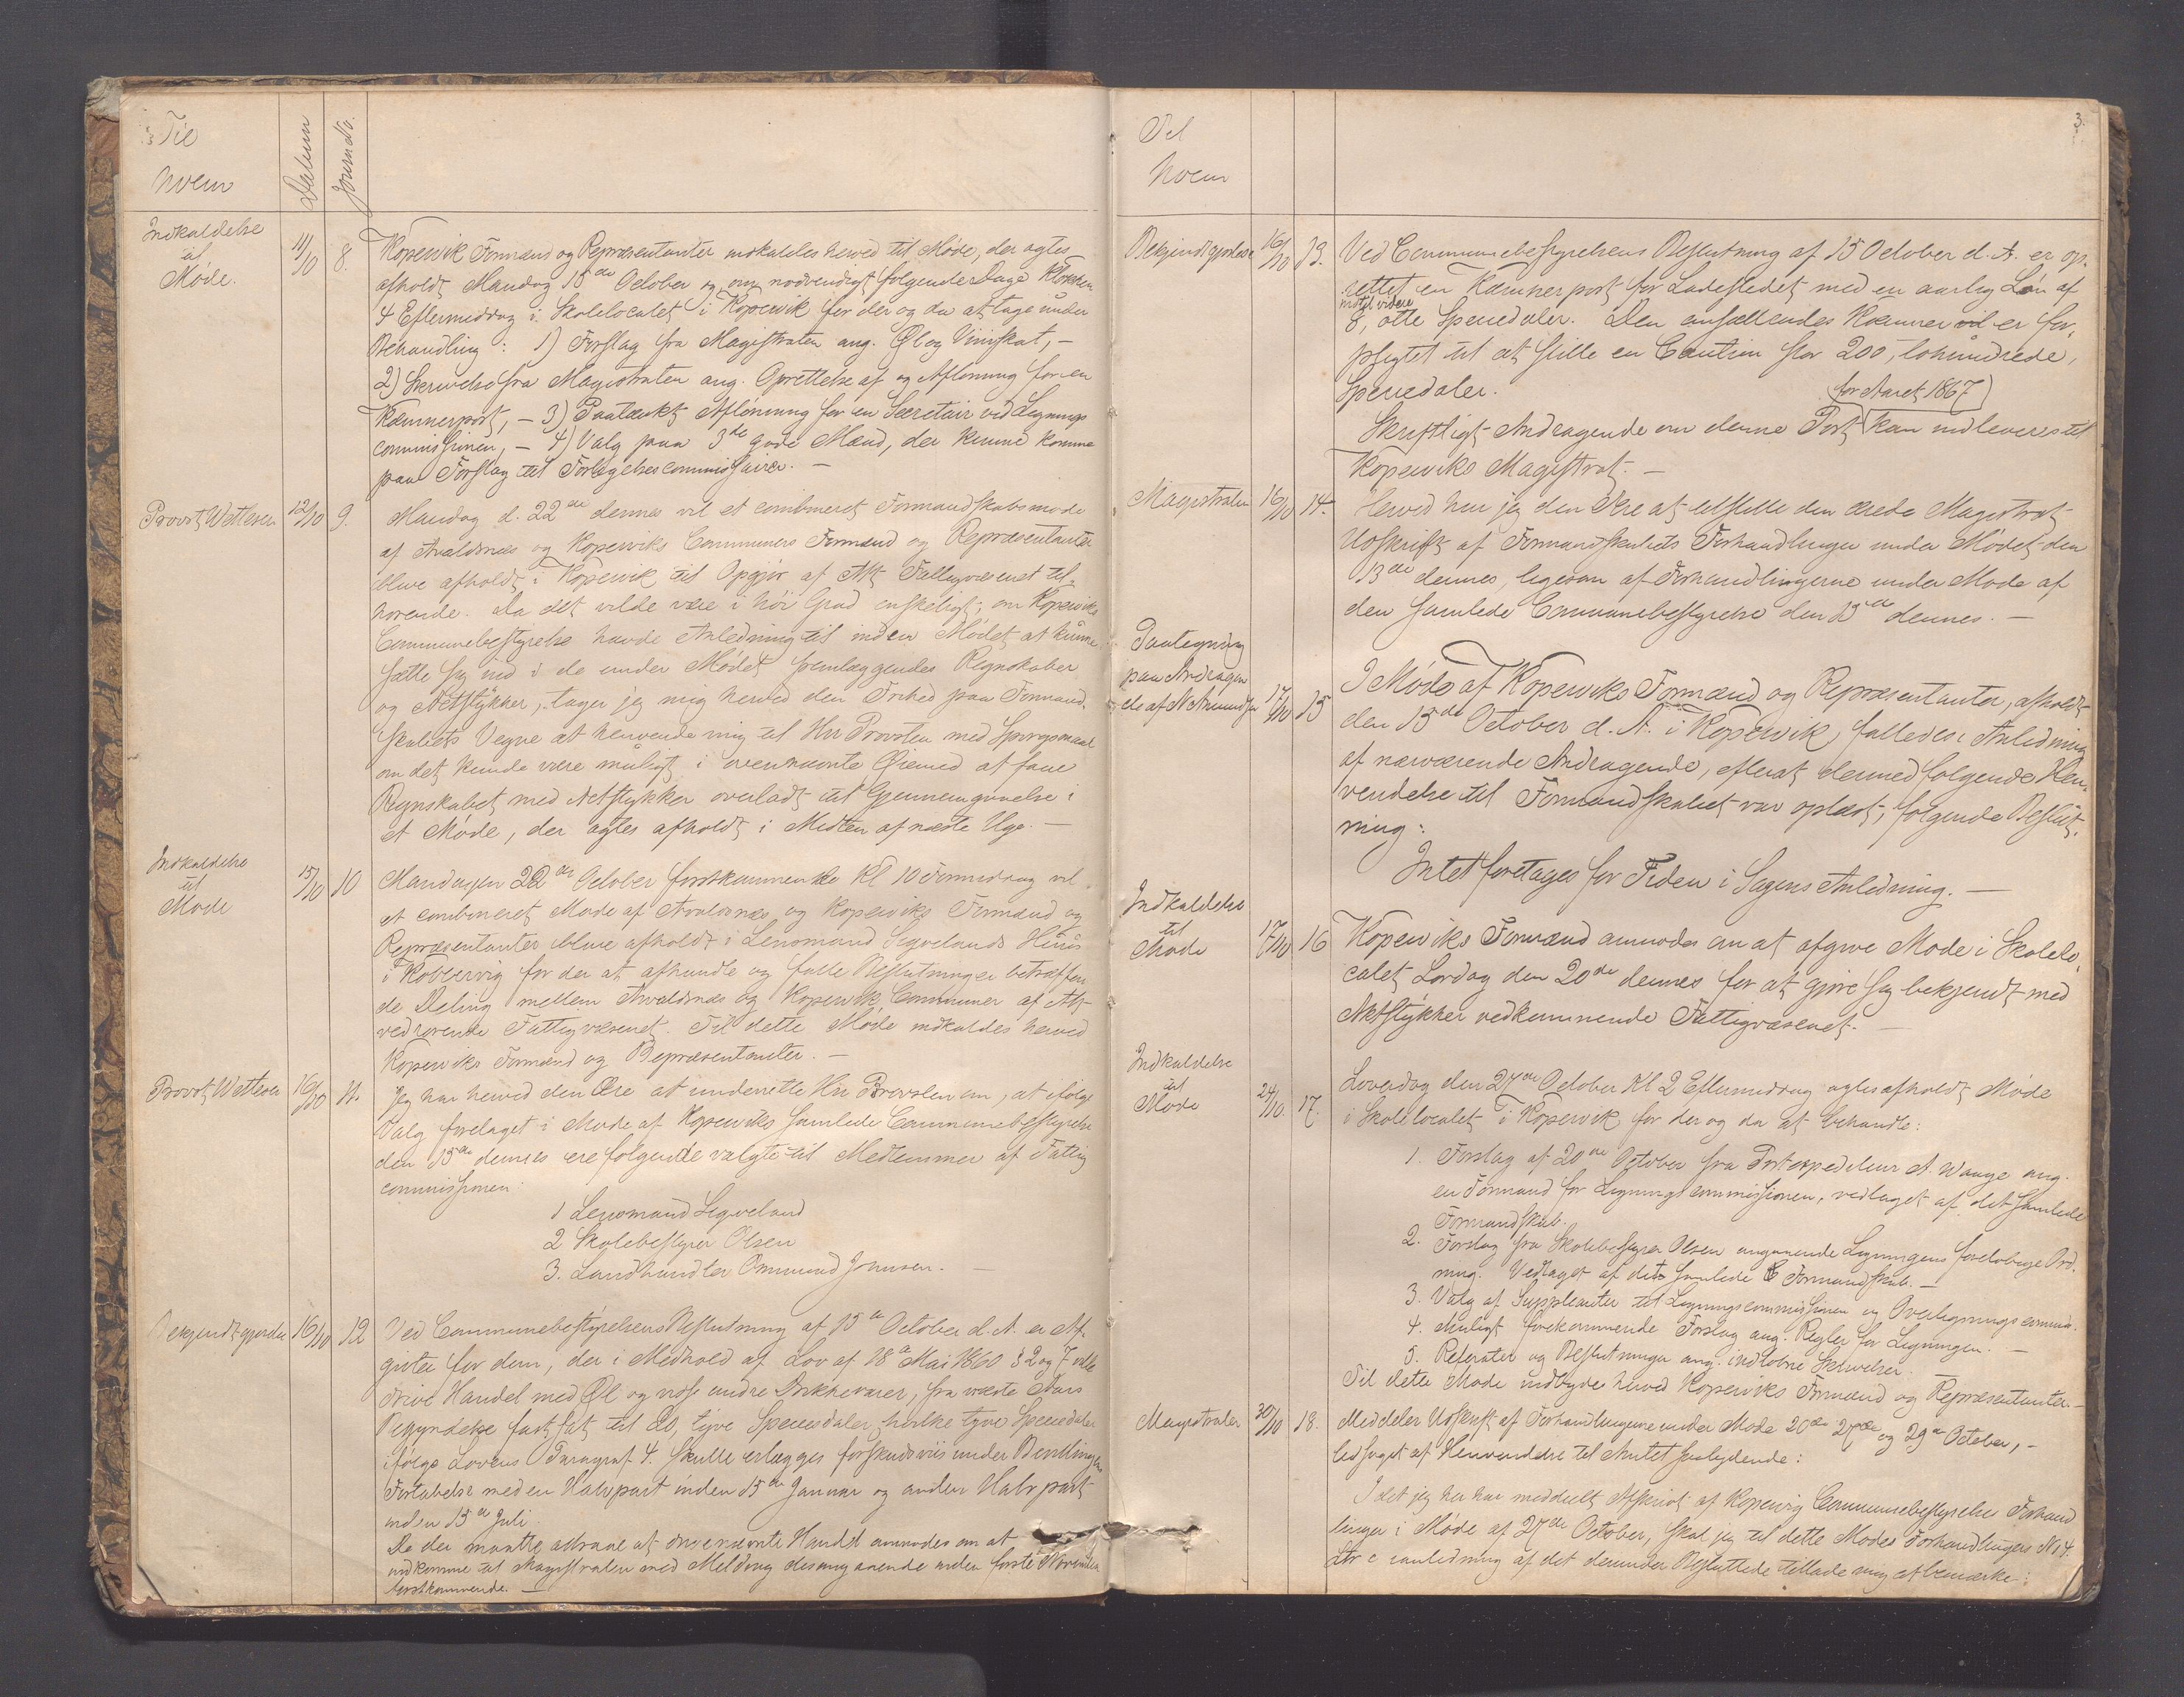 Til
hvem
Datum
Journ.No.
Indkaldelse
til
Møde.
11/10
8.
Kopervik Formænd og Repræsentanter indkaldes herved til Møde, der agtes
afholdt Mandag 15de October og om nødvendigt følgende Dage Klokken
4 Eftermiddag i Skolelocalet i Kopervik for der og da at tage under
Behandling: 1) Forslag fra Magistraten ang. Øl og Viinskat, –
2) Skrivelse fra Magistraten ang. Oprettelse af og Aflønning for en
Kæmnerpost, – 3) Paatænkt Aflønning for en Secretair ved Lignings
commissionen, – 4) Valg paa 3de gode Mænd, der kunne komme
paa Forslag til Forligelsescommissairer. –
Provst Wettesen
12/10
9.
Mandag d. 22de dennes vil et combineret Formandskabsmøde
af Avaldsnæs og Koperviks Communers Formænd og Repræsentanter
blive afholdt i Kopervik til Opgjør af Alt Fattigvæsenet til-
hørende. Da det vilde være i høi Grad ønskeligt, om Koperviks
Communebestyrelse havde Anledning til inden Mødet at kunne
sætte sig ind i de under Mødet fremlæggendes Regnskaber
og Aktstykker, tager jeg mig herved den Frihed paa Formand-
skabets Vegne at henvende mig til Hr Provsten med Spørgsmaal
om det kunde være muligt i ovennævnte Øiemed at faae
Regnskabet med Aktstykker overladt til Gjennemgaaelse i
et Møde, der agtes afholdt i Midten af næste Uge. –
Indkaldelse
til
Møde
15/10
10
Mandagen 22de October førstkommende Kl 10 Formiddag vil
et combineret Møde af Avaldsnæs og Koperviks Formænd og
Repræsentanter blive afholdt i Lensmand Sigvelands Huus
i Kobbervig for der at afhandle og fatte Beslutninger betræffen
de Deling mellem Avaldsnæs og Kopervik Communer af Alt
vedrørende Fattigvæsenet. Til dette Møde indkaldes herved
Koperviks Formænd og Repræsentanter. –
Provst Wettesen
16/10
11.
Jeg har herved den Ære at underrette Hr Provsten om, at ifølge
Valg foretaget i Møde af Koperviks samlede Communebestyrelse
den 15de dennes ere følgende valgte til Medlemmer af Fattig
commissionen:
1 Lensmand Sigveland
2 Skolebestyrer Olsen
3. Landhandler Ommund Jonnsen. –
Bekjendtgjørelse
16/10
12
Ved Communebestyrelsens Beslutning af 15de October d. A. er Af-
giften for dem, der i Medhold af Lov af 18de Mai 1860 § 2 og 7 ville
drive Handel med Øl og visse andre Drikkevarer, fra næste Aars
Begyndelse fastsat til 20, tyve Speciesdaler, hvilke tyve Speciedaler
ifølge Lovens Paragraf 4. skulle erlægges forskudsviis under Bevillingens
Fortabelse med en Halvpart inden 15de Januar og anden Halvpart
inden 15de Juli.
De der maatte attraae at ovennævnte Handel anmodes om at
indkomme til Magistraten med Melding desangaaende inden første November
førstkommende. –
Til
hvem
3.
Bekjendtgjørelse
16/10
13.
Ved Communebestyrelsens Beslutning af 15 October d. A. er op-
rettet en Kæmnerpost for Ladestedet med en aarlig Løn af
indtil videre
8, otte Speciedaler. Den ansættendes Kæmner er for-
pligtet til at stille en Caution stor 200, tohundrede,
Speciedaler.
for Aaret 1867
Skriftligt Andragende om denne Post kan indleveres til
Koperviks Magistrat. –
Magistraten
16/10
14.
Herved har jeg den Ære at tilstille den ærede Magistrat
Udskrift af Formandskabets Forhandlinger under Mødet den
13de dennes, ligesom af Forhandlingerne under Møde af
den samlede Communebestyrelse den 15de dennes. –
Paategning
paa Andragen
de af N Amundsen
17/10
15
I Møde af Koperviks Formænd og Repræsentanter, afholdt
den 15de October d. A. i Kopervik, fattedes i Anledning
af nærværende Andragende, efterat dermed følgende Hen-
vendelse til Formandskabet var oplæst, følgende Beslut-
ning:
Intet foretages for Tiden i Sagens Anledning. –
Indkaldelse
til
Møde
17/10
16
Koperviks Formænd anmodes om at afgive Møde i Skolelo-
calet Lørdag den 20de dennes for at gjøre sig bekjendt med
Aktstykker vedkommende Fattigvæsenet. –
Indkaldelse
til
Møde
24/10.
17.
Løverdag den 27de October Kl 2 Eftermiddag agtes afholdt Møde
i Skolelocalet i Kopervik for der og da at behandle:
1. Forslag af 20de October fra Postexpediteur A. Waage ang.
en Formand for Ligningscommissionen, vedtaget af det samlede
Formandskab.
2. Forslag fra Skolebestyrer Olsen angaaende Ligningens foreløbige Ord-
ning. Vedtaget af det samlede Formandskab. –
3. Valg af Suppleanter til Ligningscommissionen og Overligningscommis.
4. Muligt forekommende Forslag ang. Regler for Ligningen. –
5. Referater og Beslutninger ang. indløbne Skrivelser.
Til dette Møde indbydes herved Koperviks Formænd og Repræsentanter. –
Magistraten
30/10
18.
Meddeler Udskrift af Forhandlingerne under Møde 20de 27de og 29de October, –
ledsaget af Henvendelse til Amtet saalydende:
Idet jeg her har meddeelt Afskrivt af Kopervig Communebestyrelses Forhand
linger i Møde af 27de October, skal jeg til dette Mødes Forhandlingers No 4.
Litr c i anledning af det derunder Besluttede tillade mig at bemærke: